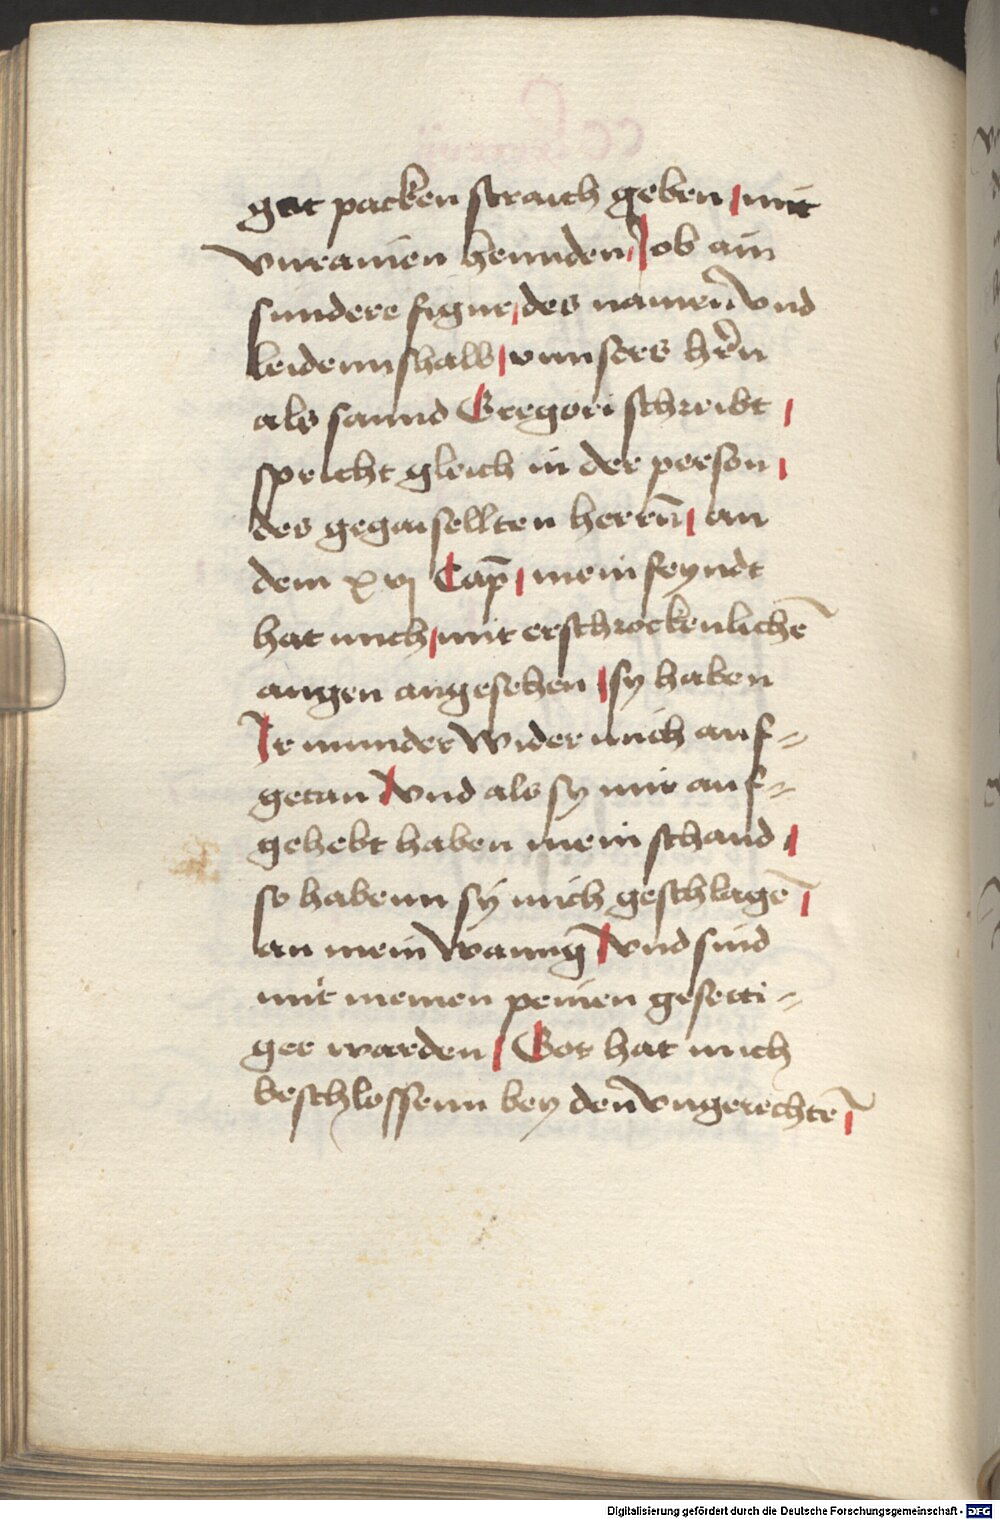 gat packen straich geben / mit
vnrainen hennden / Job ain
sundere figur / des namen̄ vnd
leidennshalb / vnnsers hr̄n
als sannd Gregori schreibt /
spricht gleich in der person /
des gegaisellten herrn̄ / an
dem xvj Cap̄ / mein feyndt
hat mich / mit erschrockenlichē
augen angesehen / sy haben
Ir munder wider mich auf-
getan / vnd als sy mir auf-
gehebt haben mein schand /
so habenn sÿ mich geschlagē /
an mein wannḡ / vnd sind
mit meinen peinen gesetti-
ger warden / Got hat mich
beschlossenn bey den̄ vngerechtē /
Digitalisierung gefördert durch die Deutsche Forschungsgemeinschaft - DFG